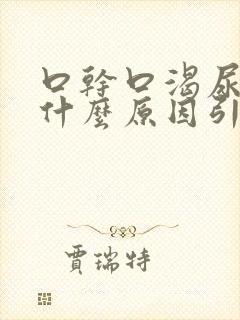 口幹口渴尿
什麼原因引
賈瑞特